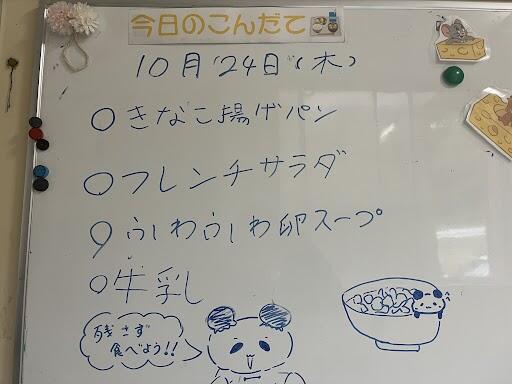 今日のこんだて
10月24日(木)
○きなこ揚げパン
○フレンチサラダ
○ふわふわ卵スープ
○牛乳
残さず
食べよう!!